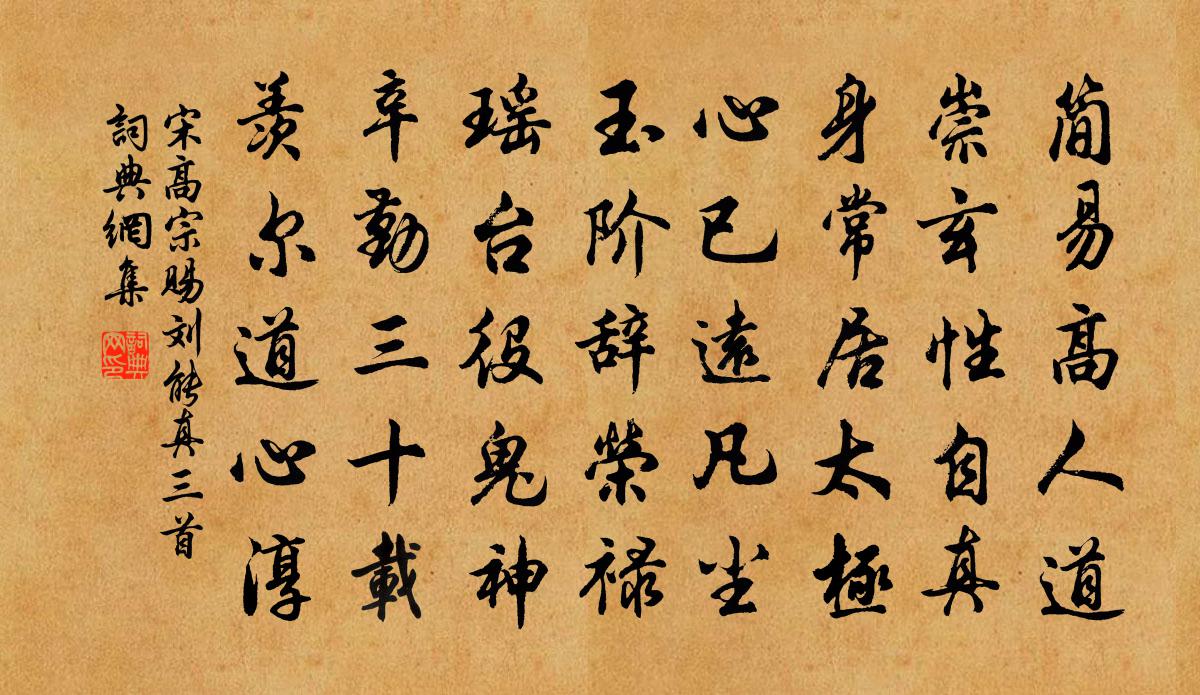 简易高人道
崇玄性自真
身常居太極
心已遠凡尘
玉阶辞榮禄
瑶台役鬼神
辛勤三十載
羡尔道心淳
宋高宗赐刘能真三首
詞典網集
詞典
网印